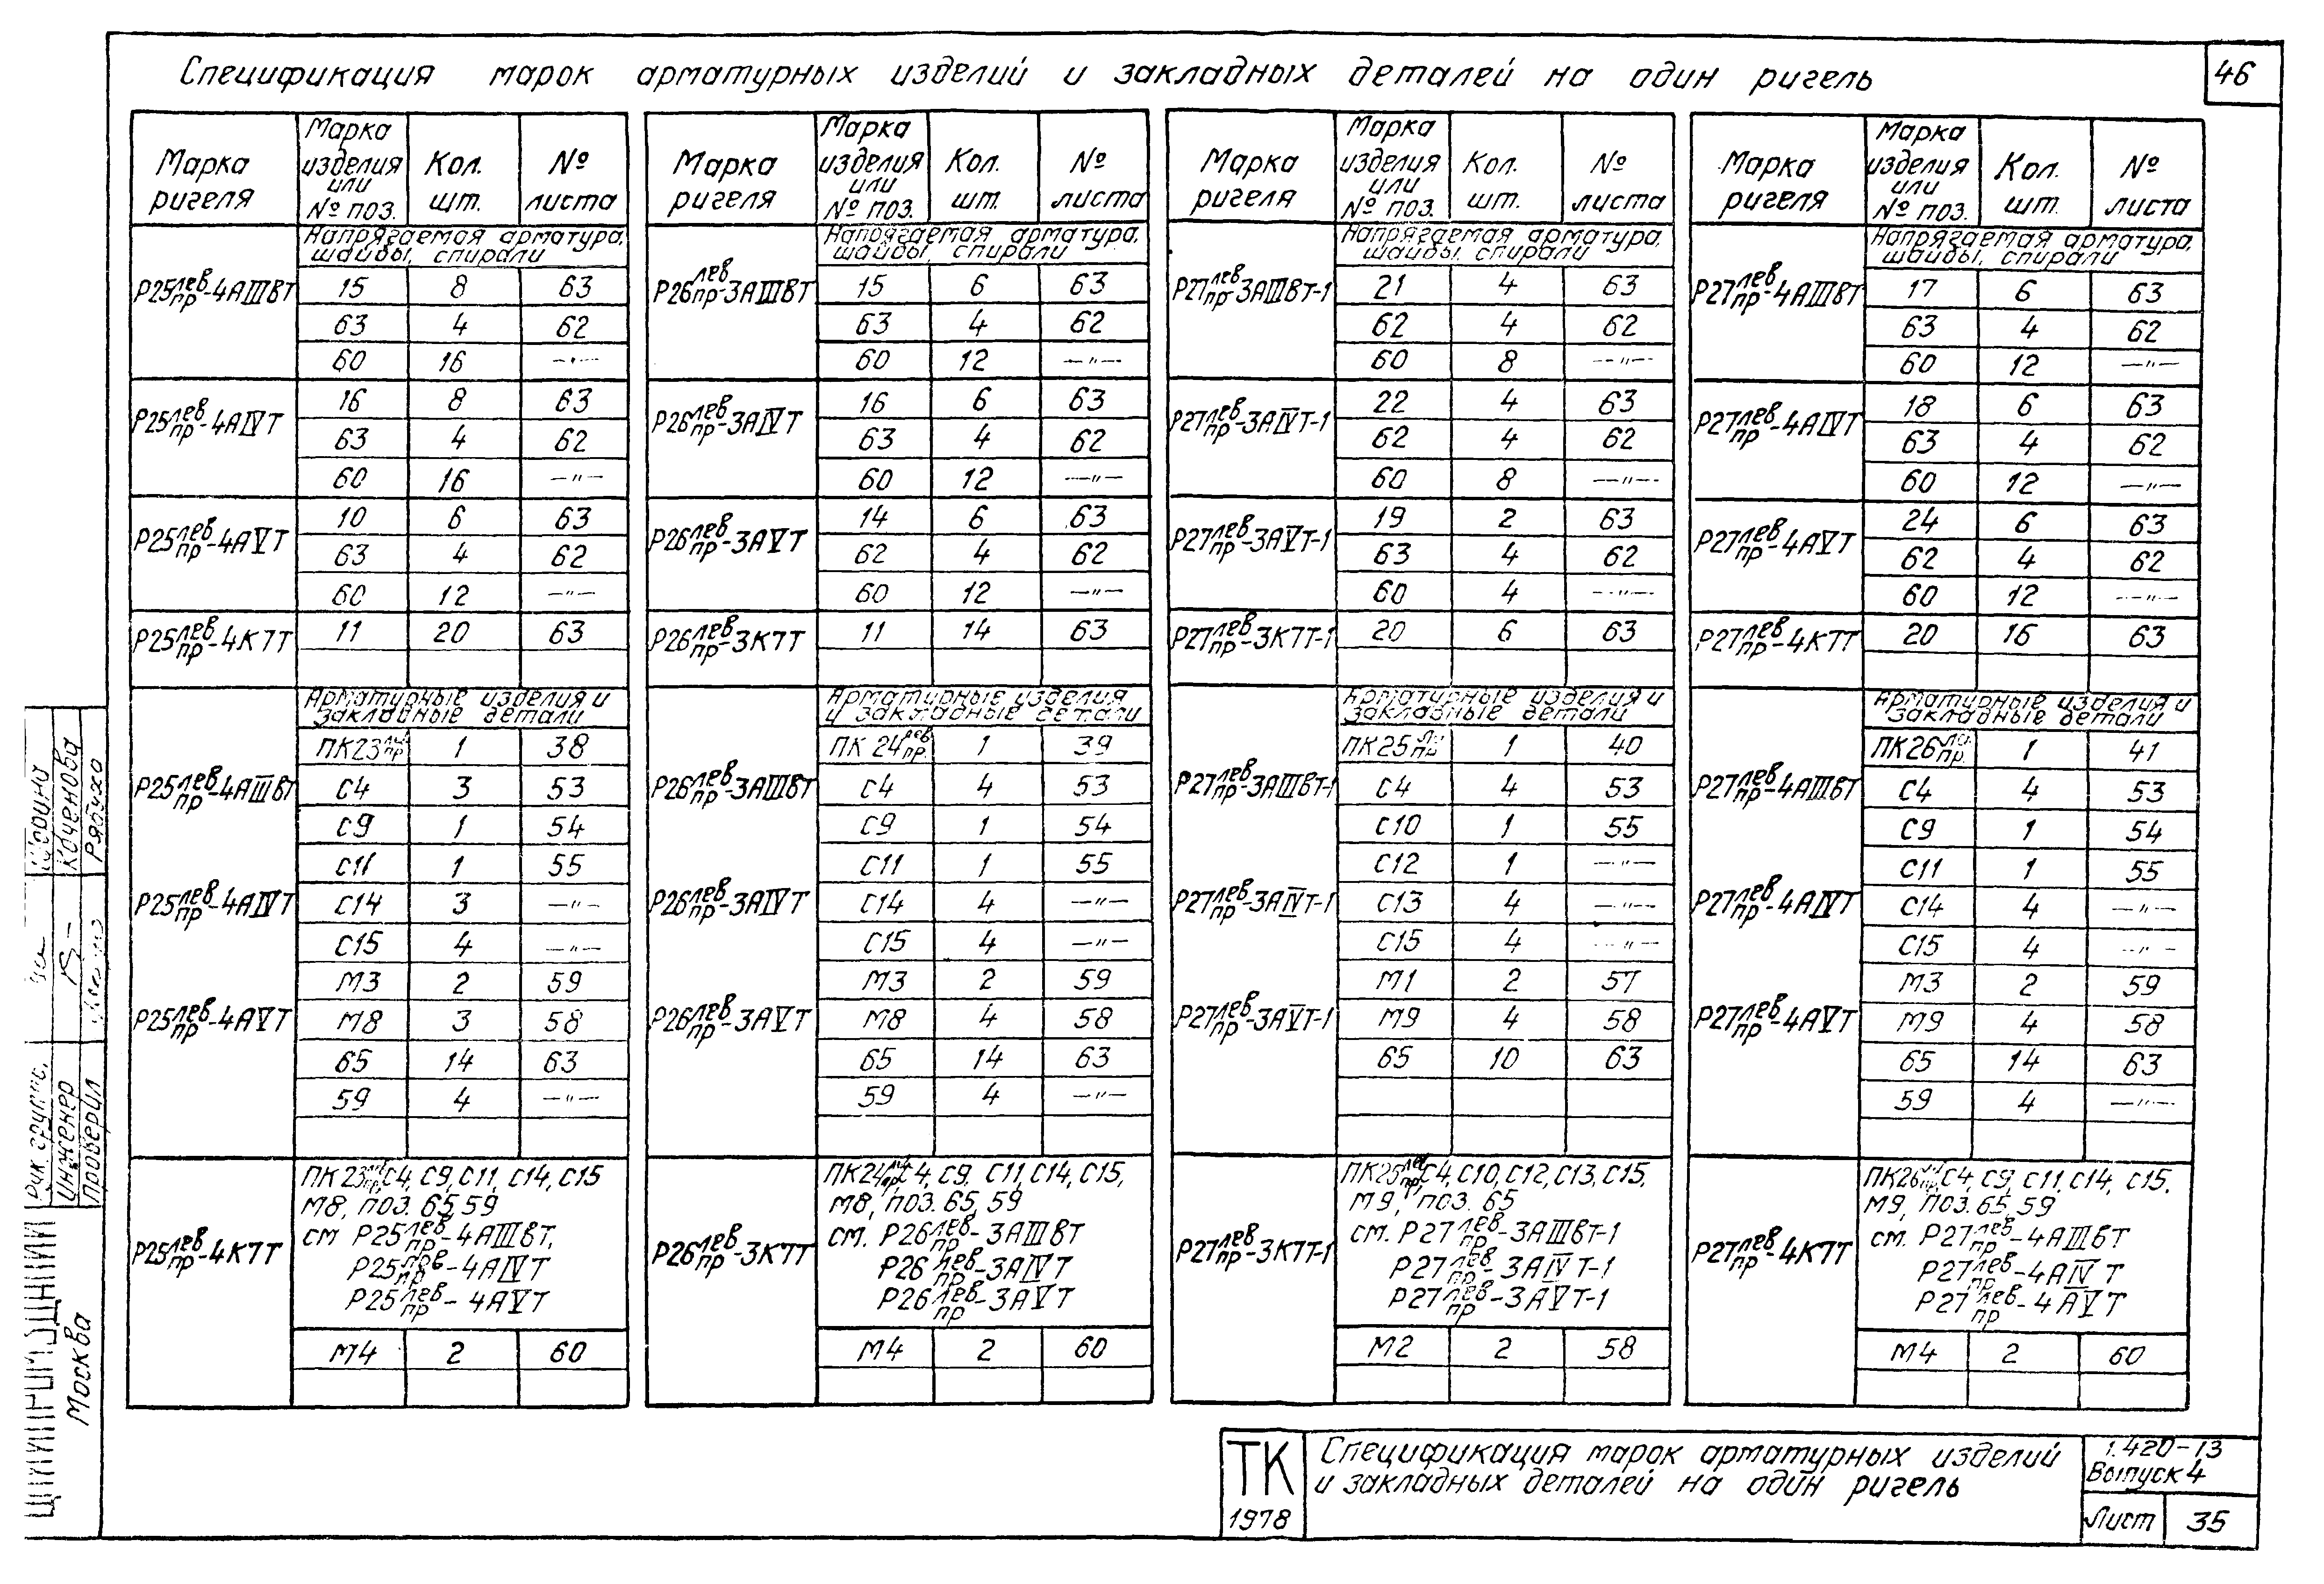 Спецификация марок арматурных изделий и закладных деталей на один ригель
46
Марка ригеля | Марка изделия или № поз. | Кол. шт. | № листа
Напрягаемая арматура, шайбы, спирали
Р25лев/пр-4АIIIВТ | 15 | 8 | 63
63 | 4 | 62
60 | 16 | —"—
Р25лев/пр-4АIVТ | 16 | 8 | 63
63 | 4 | 62
60 | 16 | —"—
Р25лев/пр-4АVТ | 10 | 6 | 63
63 | 4 | 62
60 | 12 | —"—
Р25лев/пр-4К7Т | 11 | 20 | 63
Арматурные изделия и закладные детали
Р25лев/пр-4АIIIВТ
Р25лев/пр-4АIVТ
Р25лев/пр-4АVТ
ПК23лев/пр | 1 | 38
С4 | 3 | 53
С9 | 1 | 54
С11 | 1 | 55
С14 | 3 | —"—
С15 | 4 | —"—
М3 | 2 | 59
М8 | 3 | 58
65 | 14 | 63
59 | 4 | —"—
Р25лев/пр-4К7Т
ПК23лев/пр, С4, С9, С11, С14, С15
М8, поз. 65, 59
см Р25лев/пр-4АIIIВТ,
Р25лев/пр-4АIVТ
Р25лев/пр-4АVТ
М4 | 2 | 60
Марка ригеля | Марка изделия или № поз. | Кол. шт. | № листа
Напрягаемая арматура, шайбы, спирали
Р26лев/пр-3АIIIВТ | 15 | 6 | 63
63 | 4 | 62
60 | 12 | —"—
Р26лев/пр-3АIVТ | 16 | 6 | 63
63 | 4 | 62
60 | 12 | —"—
Р26лев/пр-3АVТ | 14 | 6 | 63
62 | 4 | 62
60 | 12 | —"—
Р26лев/пр-3К7Т | 11 | 14 | 63
Арматурные изделия и закладные детали
Р26лев/пр-3АIIIВТ
Р26лев/пр-3АIVТ
Р26лев/пр-3АVТ
ПК24лев/пр. | 1 | 39
С4 | 4 | 53
С9 | 1 | 54
С11 | 1 | 55
С14 | 4 | —"—
С15 | 4 | —"—
М3 | 2 | 59
М8 | 4 | 58
65 | 14 | 63
59 | 4 | —"—
Р26лев/пр-3К7Т
ПК24лев/пр, С4, С9, С11, С14, С15,
М8, поз. 65, 59
см. Р26лев/пр-3АIIIВТ
Р26лев/пр-3АIVТ
Р26лев/пр-3АVТ
М4 | 2 | 60
Марка ригеля | Марка изделия или № поз. | Кол. шт. | № листа
Напрягаемая арматура, шайбы, спирали
Р27лев/пр-3АIIIВТ-1 | 21 | 4 | 63
62 | 4 | 62
60 | 8 | —"—
Р27лев/пр-3АIVТ-1 | 22 | 4 | 63
62 | 4 | 62
60 | 8 | —"—
Р27лев/пр-3АVТ-1 | 19 | 2 | 63
63 | 4 | 62
60 | 4 | —"—
Р27лев/пр-3К7Т-1 | 20 | 6 | 63
Арматурные изделия и закладные детали
Р27лев/пр-3АIIIВТ-1
Р27лев/пр-3АIVТ-1
Р27лев/пр-3АVТ-1
ПК25лев/пр | 1 | 40
С4 | 4 | 53
С10 | 1 | 55
С12 | 1 | —"—
С13 | 4 | —"—
С15 | 4 | —"—
М1 | 2 | 57
М9 | 4 | 58
65 | 10 | 63
Р27лев/пр-3К7Т-1
ПК25лев/пр, С4, С10, С12, С13, С15,
М9, поз. 65
см. Р27лев/пр-3АIIIВТ-1
Р27лев/пр-3АIVТ-1
Р27лев/пр-3АVТ-1
М2 | 2 | 58
Марка ригеля | Марка изделия или № поз. | Кол. шт. | № листа
Напрягаемая арматура, шайбы, спирали
Р27лев/пр-4АIIIВТ | 17 | 6 | 63
63 | 4 | 62
60 | 12 | —"—
Р27лев/пр-4АIVТ | 18 | 6 | 63
63 | 4 | 62
60 | 12 | —"—
Р27лев/пр-4АVТ | 24 | 6 | 63
62 | 4 | 62
60 | 12 | —"—
Р27лев/пр-4К7Т | 20 | 16 | 63
Арматурные изделия и закладные детали
Р27лев/пр-4АIIIВТ
Р27лев/пр-4АIVТ
Р27лев/пр-4АVТ
ПК26лев/пр. | 1 | 41
С4 | 4 | 53
С9 | 1 | 54
С11 | 1 | 55
С14 | 4 | —"—
С15 | 4 | —"—
М3 | 2 | 59
М9 | 4 | 58
65 | 14 | 63
59 | 4 | —"—
Р27лев/пр-4К7Т
ПК26лев/пр, С4, С9, С11, С14, С15,
М9, поз. 65, 59
см. Р27лев/пр-4АIIIВТ
Р27лев/пр-4АIVТ
Р27лев/пр-4АVТ
М4 | 2 | 60
Рук. групп.
Инженер Коченова
Проверил Рябуха
ЦНИИПРОМЗДАНИЙ
Москва
ТК
1978
Спецификация марок арматурных изделий
и закладных деталей на один ригель
1.420-13
Выпуск 4
Лист 35